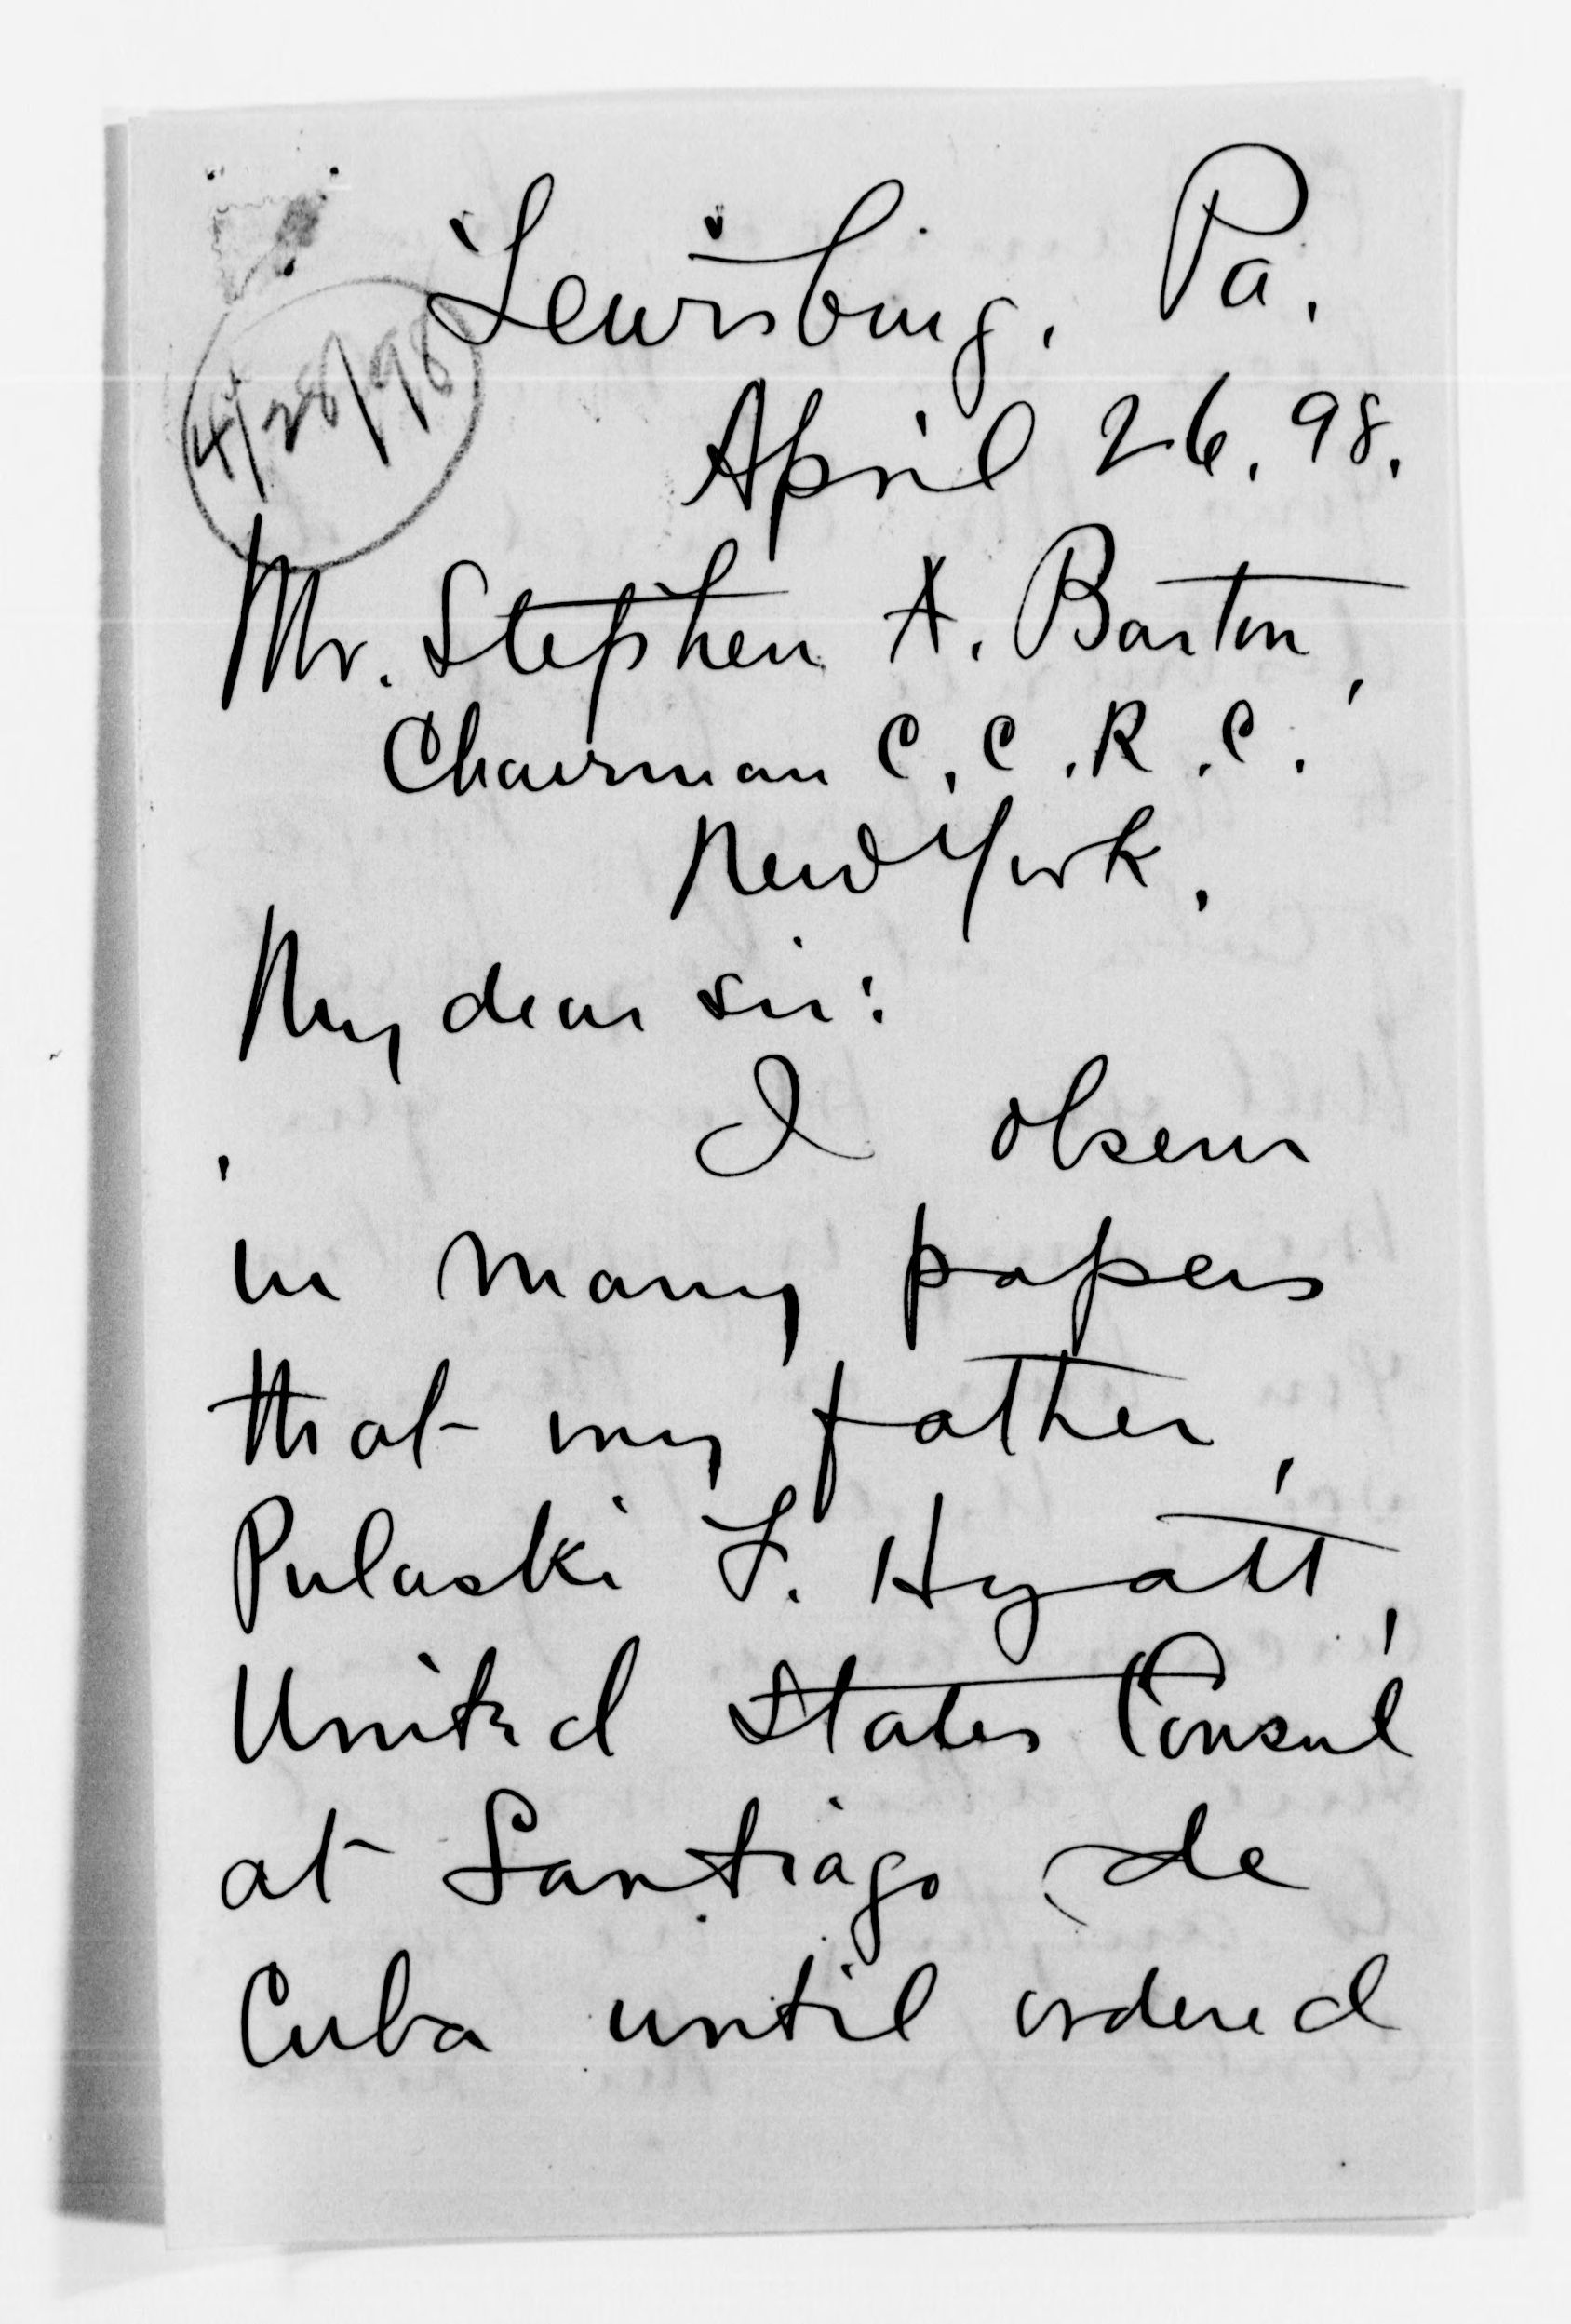 Lewisburg, Pa.
4/28/98
April 26. 98.
Mr. Stephen A. Barton,
Chairman C.C.R.C.
New York.
My dear sir:
I observe
in many papers
that my father,
Pulaski F. Hyatt,
United States Consul
at Santiago de
Cuba until ordered